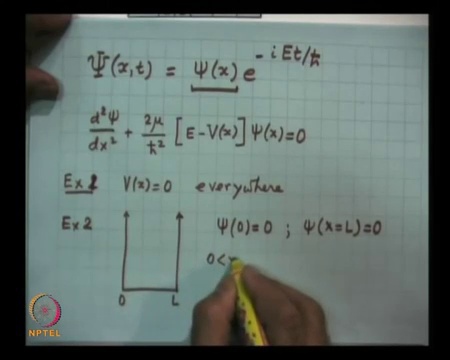 Ψ(x,t) = ψ(x) e^{-iEt/ħ}
d²ψ/dx² + 2μ/ħ² [E-V(x)] ψ(x)=0
Ex 1 V(x)=0 everywhere
Ex 2 ψ(0)=0 ; ψ(x=L)=0
0<x
0 L
NPTEL